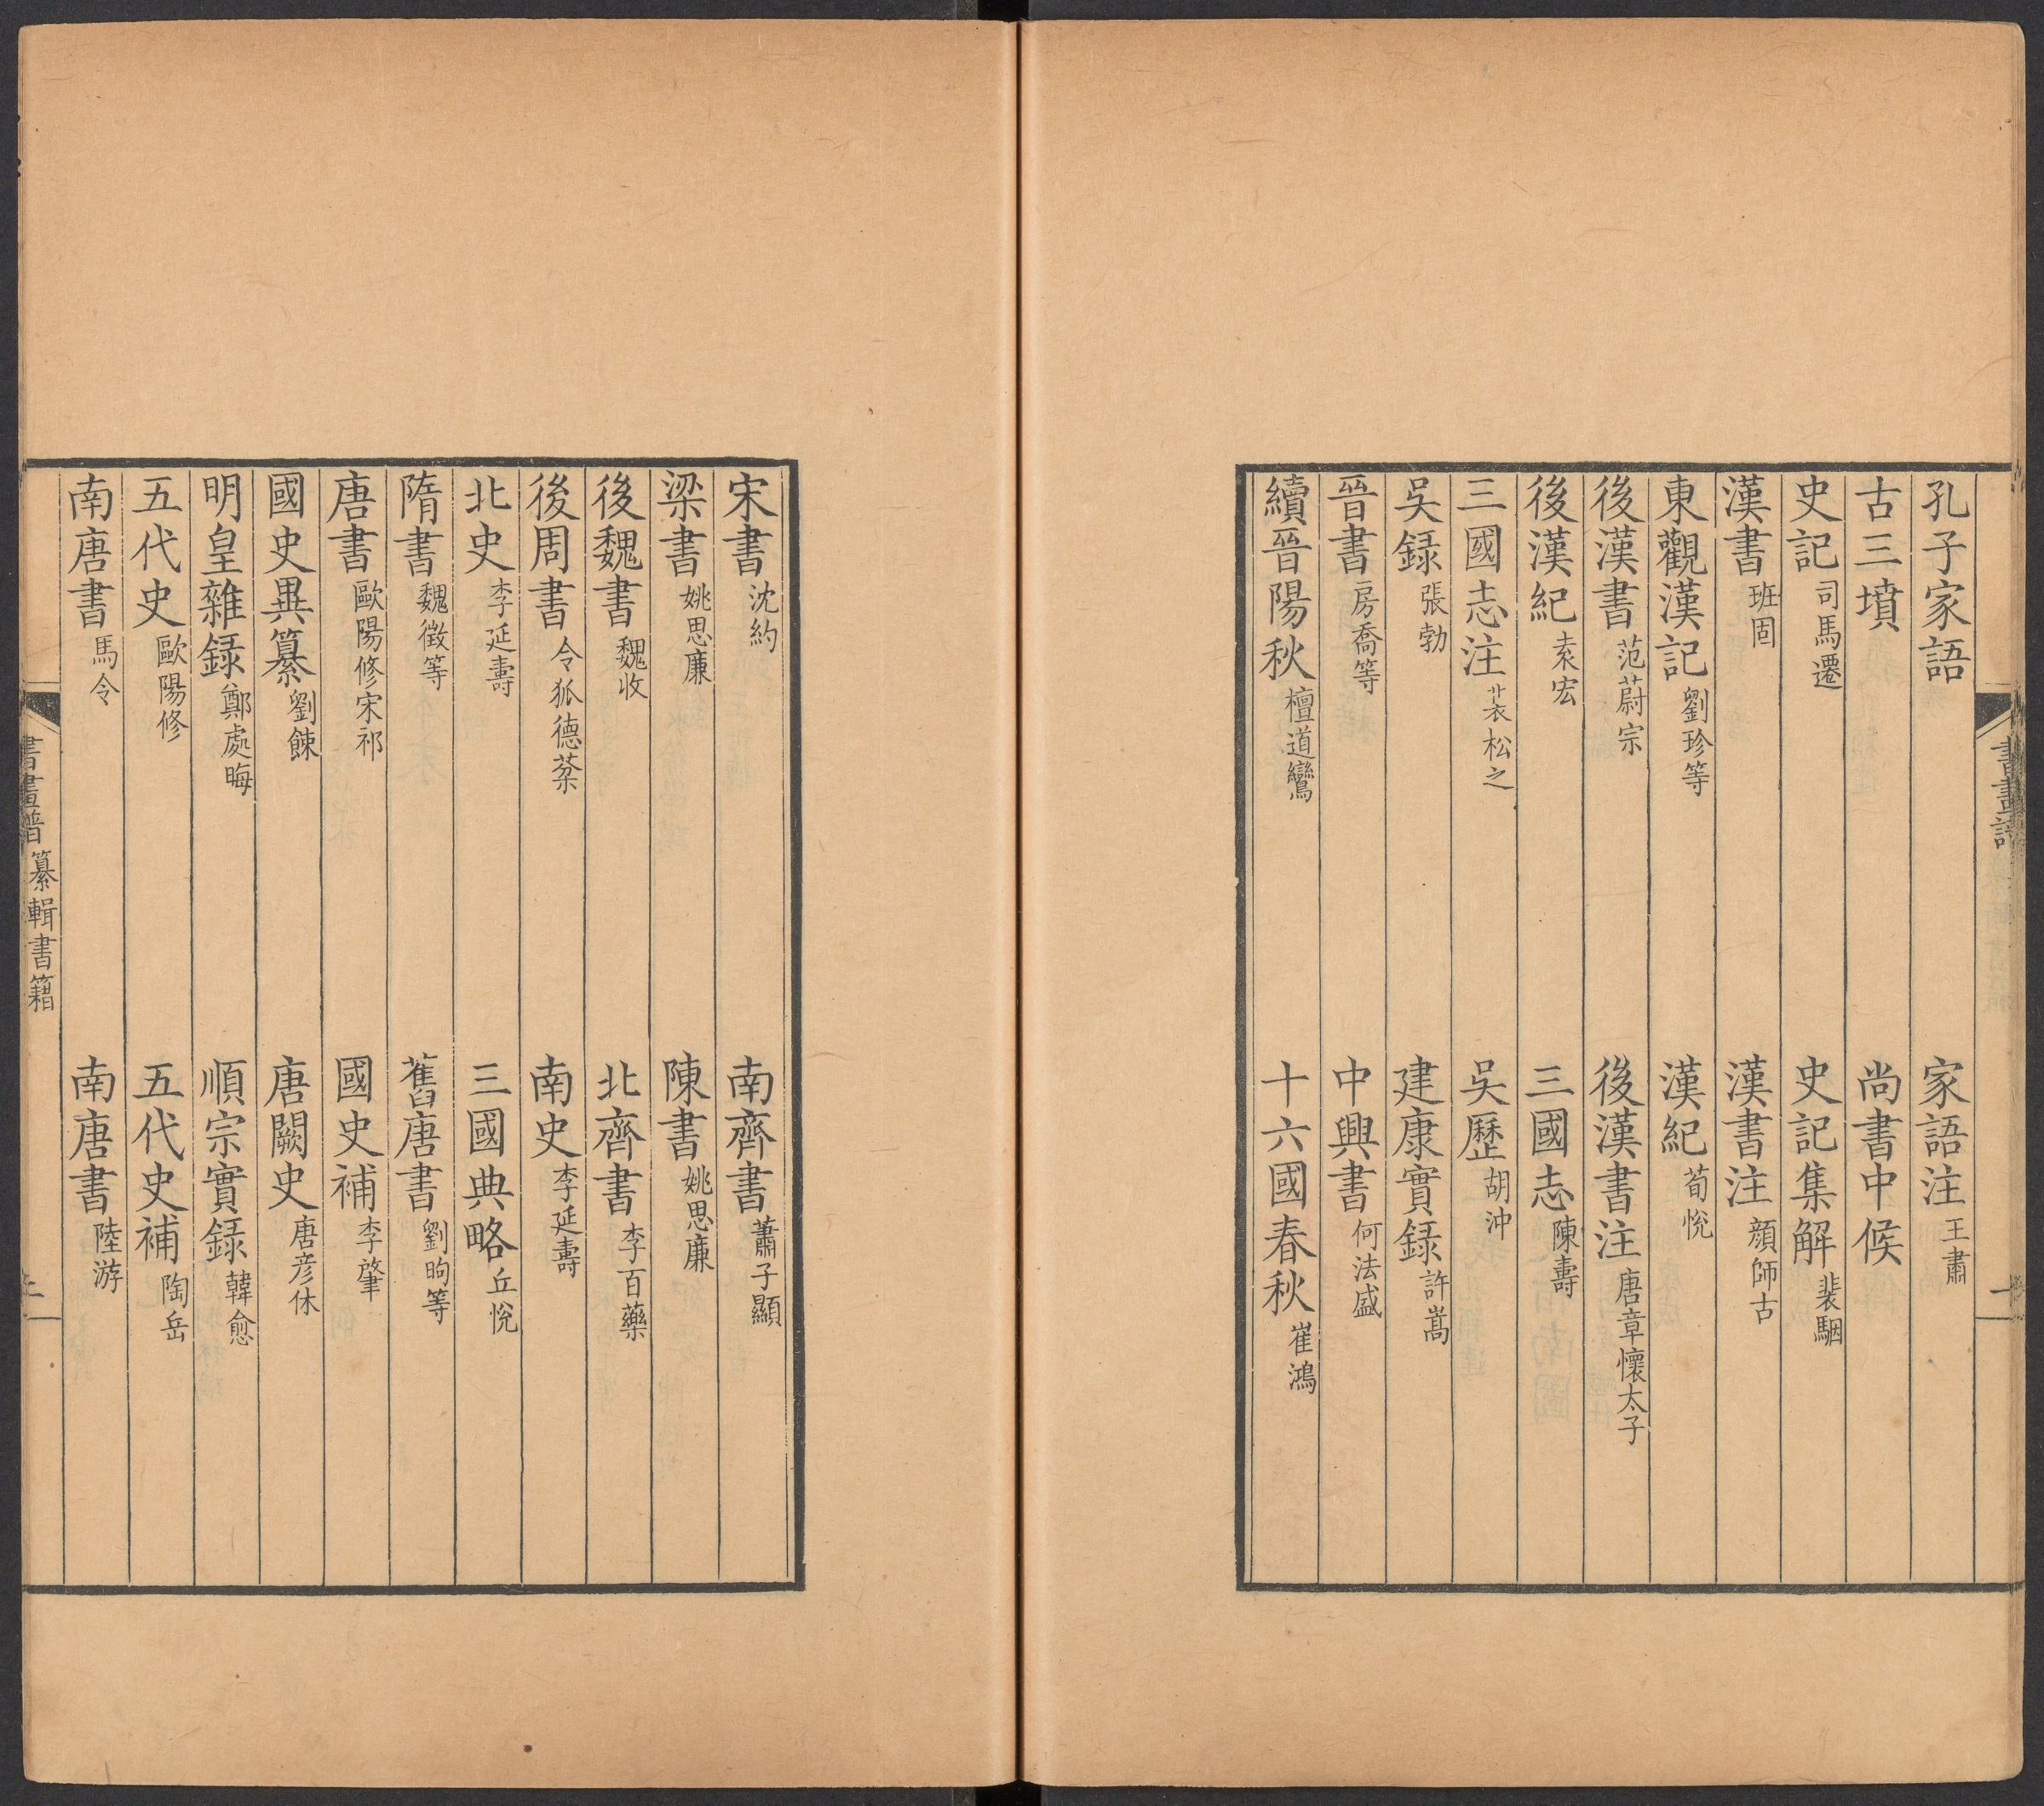 孔子家語 家語注 王肅
古三墳 尚書中候
史記 司馬遷 史記集解 裴駰
漢書 班固 漢書注 顔師古
東觀漢記 劉珍等 漢紀 荀悅
後漢書 范蔚宗 後漢書注 唐章懷太子
後漢紀 袁宏 三國志 陳壽
三國志注 裴松之 吳歷 胡沖
吳録 張勃 建康實録 許嵩
晉書 房喬等 中興書 何法盛
續晉陽秋 檀道鸞 十六國春秋 崔鴻
宋書 沈約 南齊書 蕭子顯
梁書 姚思廉 陳書 姚思廉
後魏書 魏收 北齊書 李百藥
後周書 令狐德棻 南史 李延壽
北史 李延壽 三國典略 丘悅
隋書 魏徵等 舊唐書 劉昫等
唐書 歐陽修宋祁 國史補 李肇
國史異纂 劉餗 唐闕史 唐彦休
明皇雜録 鄭處晦 順宗實録 韓愈
五代史 歐陽修 五代史補 陶岳
南唐書 馬令 南唐書 陸游
書畫譜 纂輯書籍